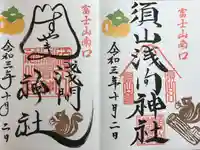 富士山南口
須山浅間神社
令和三年十月二日
富士山南口
浅間
神社
令和三年十月二日